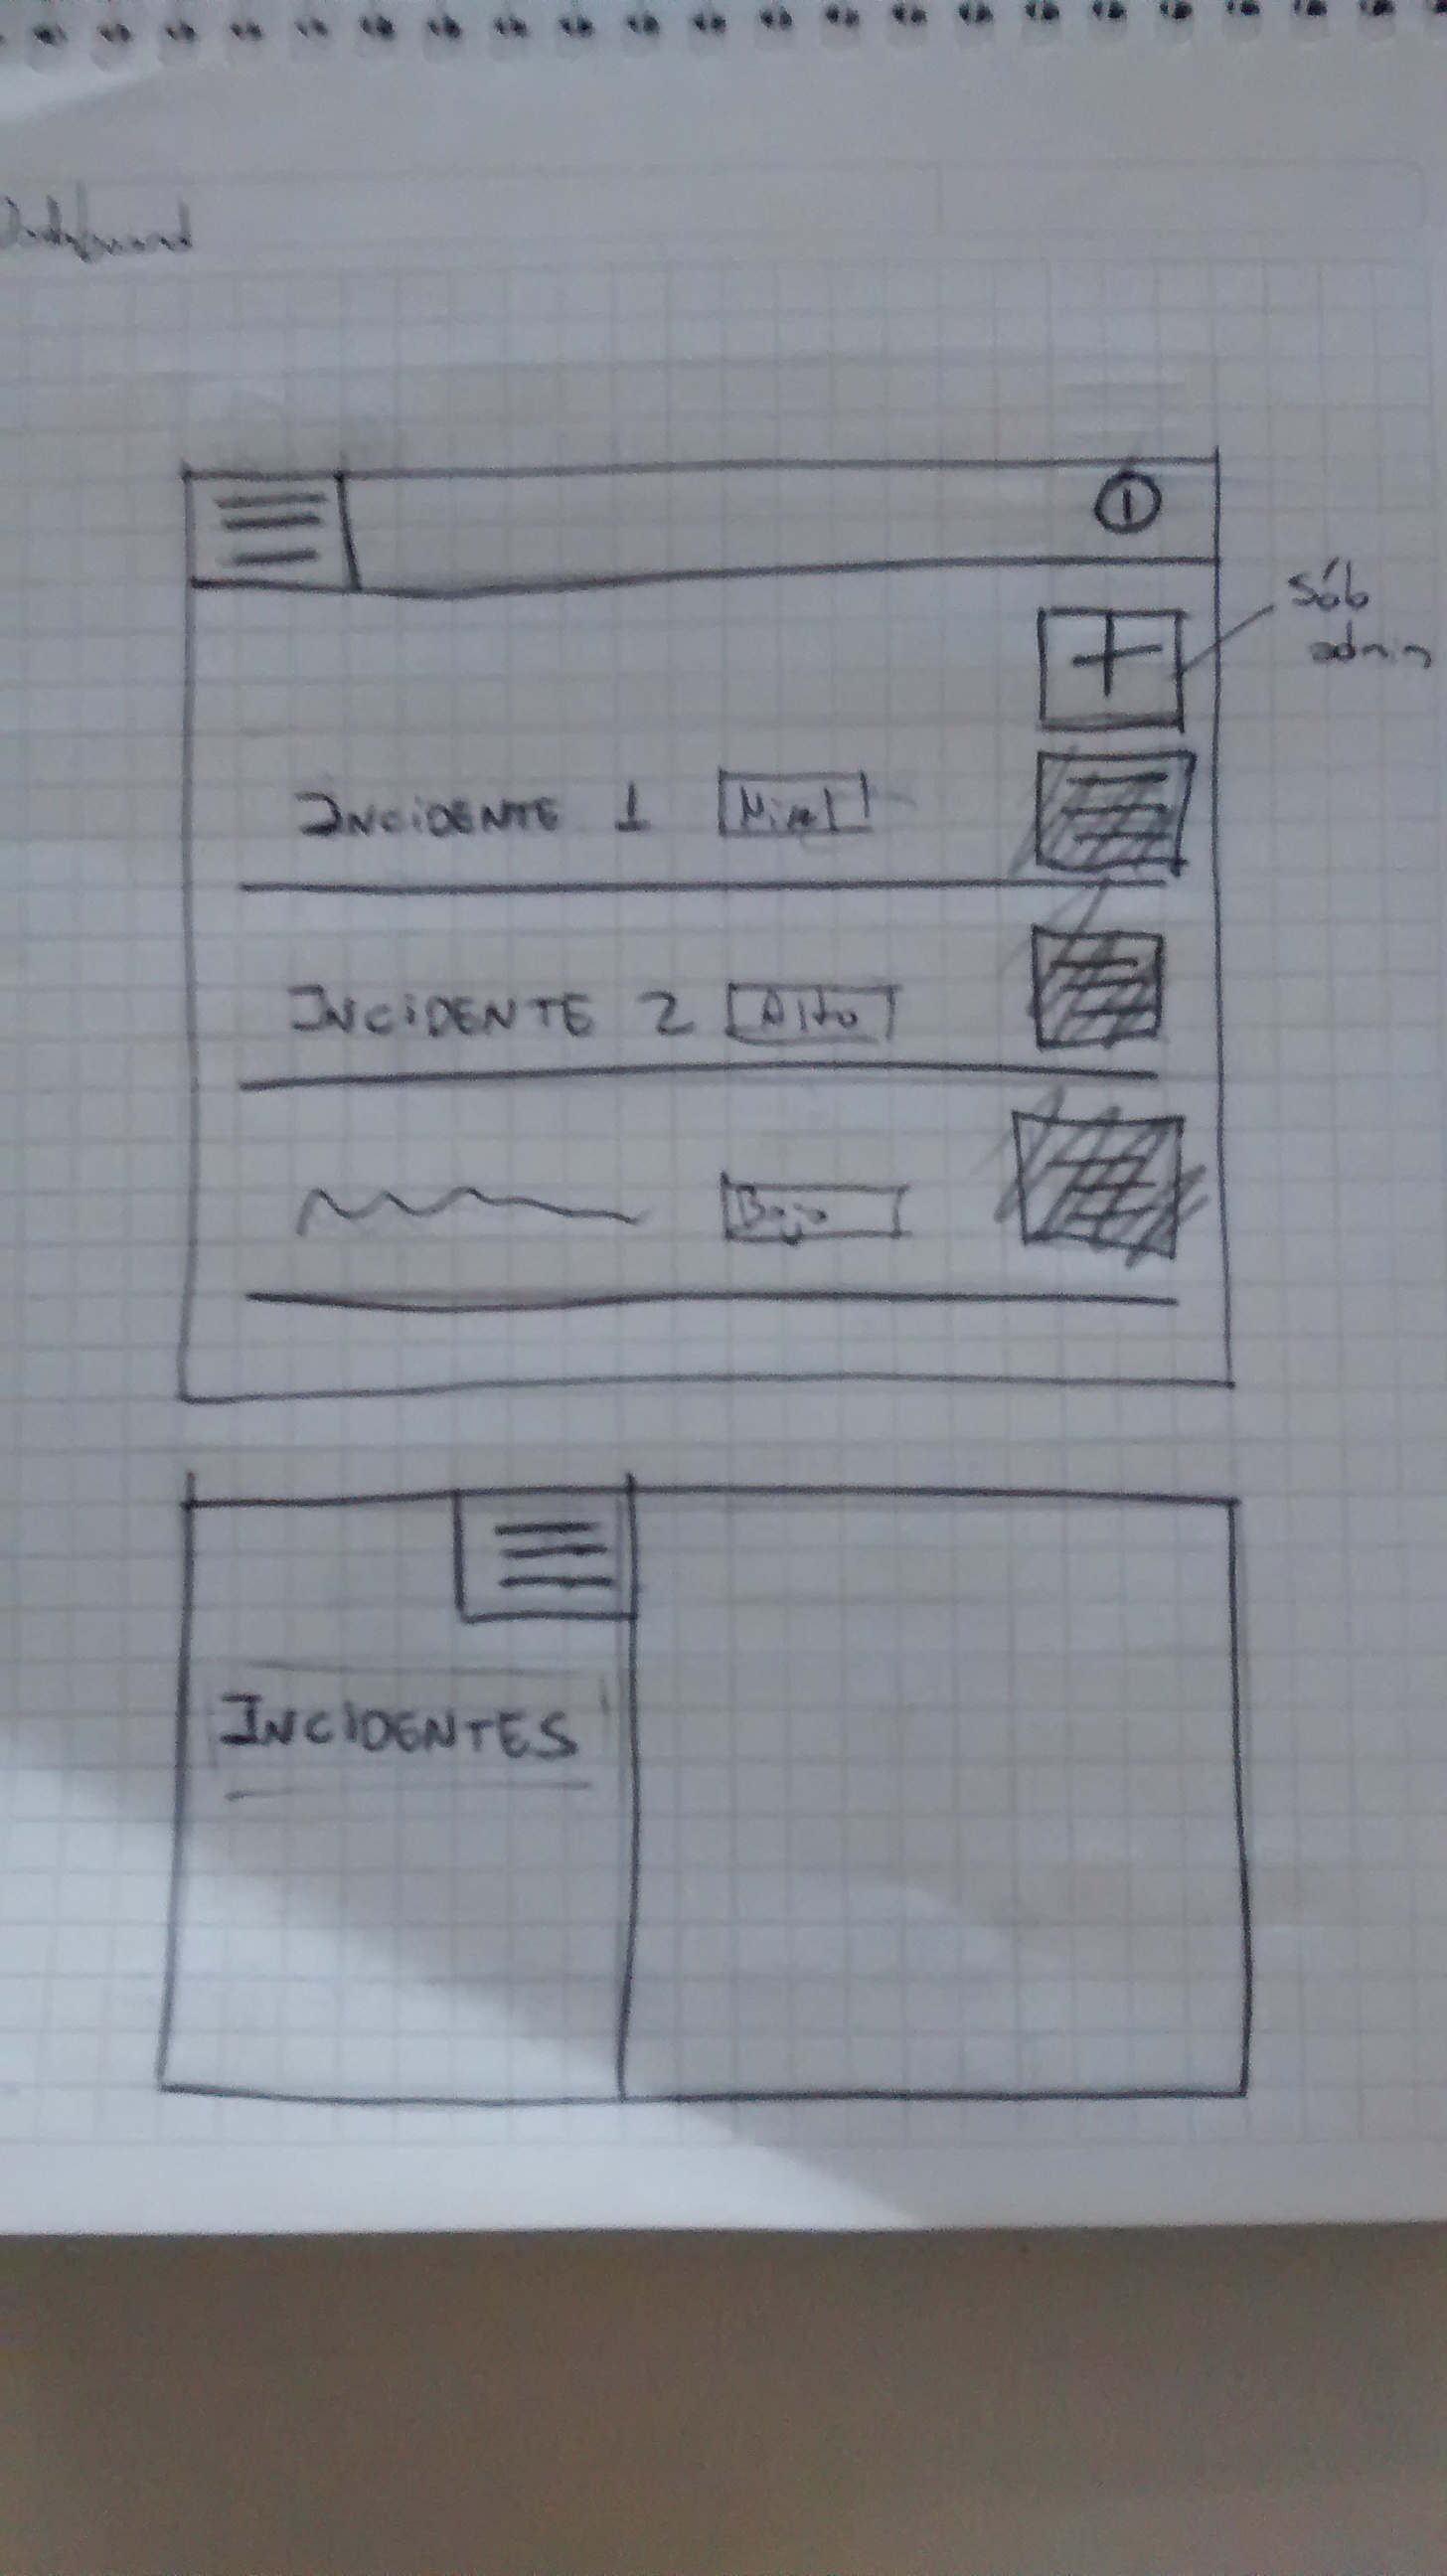 Dashboard
Sólo
admin
INCIDENTE 1 Nivel
INCIDENTE 2 Alto
Bajo
INCIDENTES